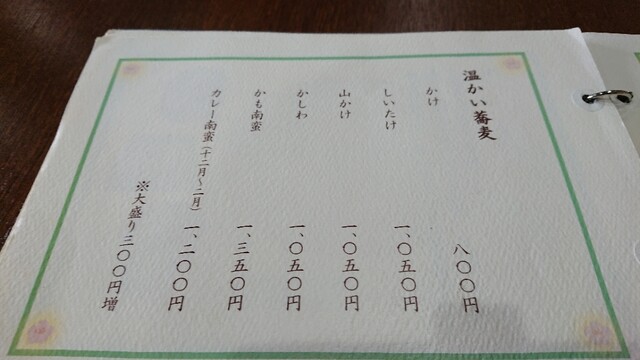 温かい蕎麦
かけ 八〇〇円
しいたけ 一、〇五〇円
山かけ 一、〇五〇円
かしわ 一、〇五〇円
かも南蛮 一、三五〇円
カレー南蛮(十二月~二月) 一、二〇〇円
※大盛り三〇〇円増